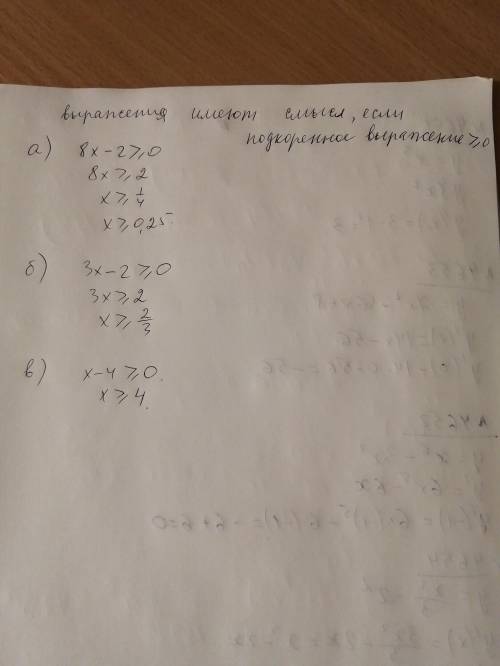 выражения имеют смысл, если
подкоренное выражение ≥ 0
а) 8x-2≥0
8x≥2
x≥1/4
x≥0,25.
б) 3x-2≥0
3x≥2
x≥2/3
в) x-4≥0.
x≥4.